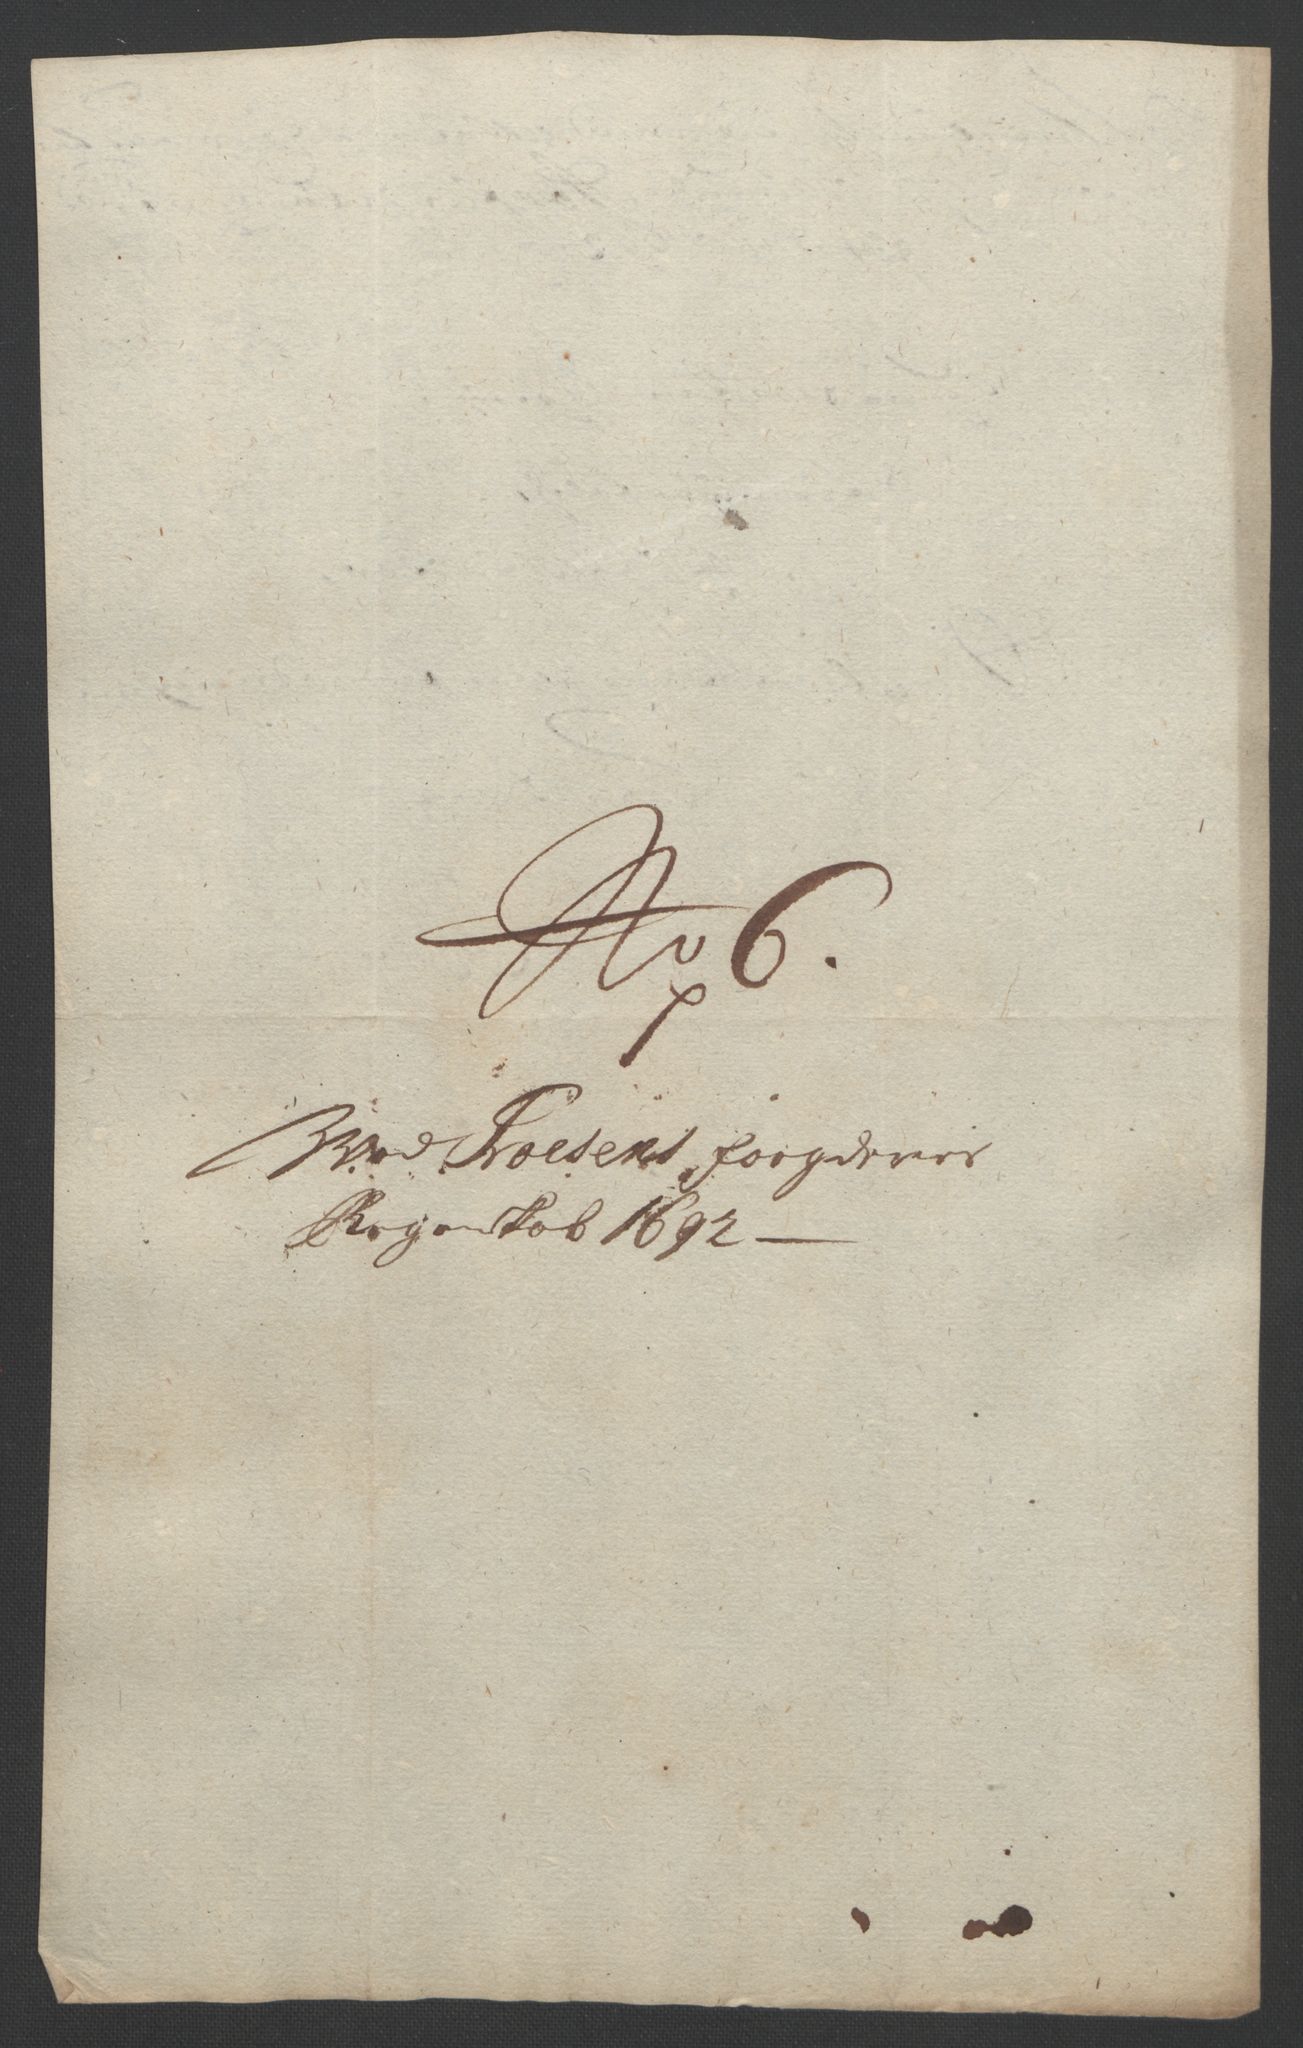 No 6.
Wed Froesens fougderies
Regenskab 1692 —